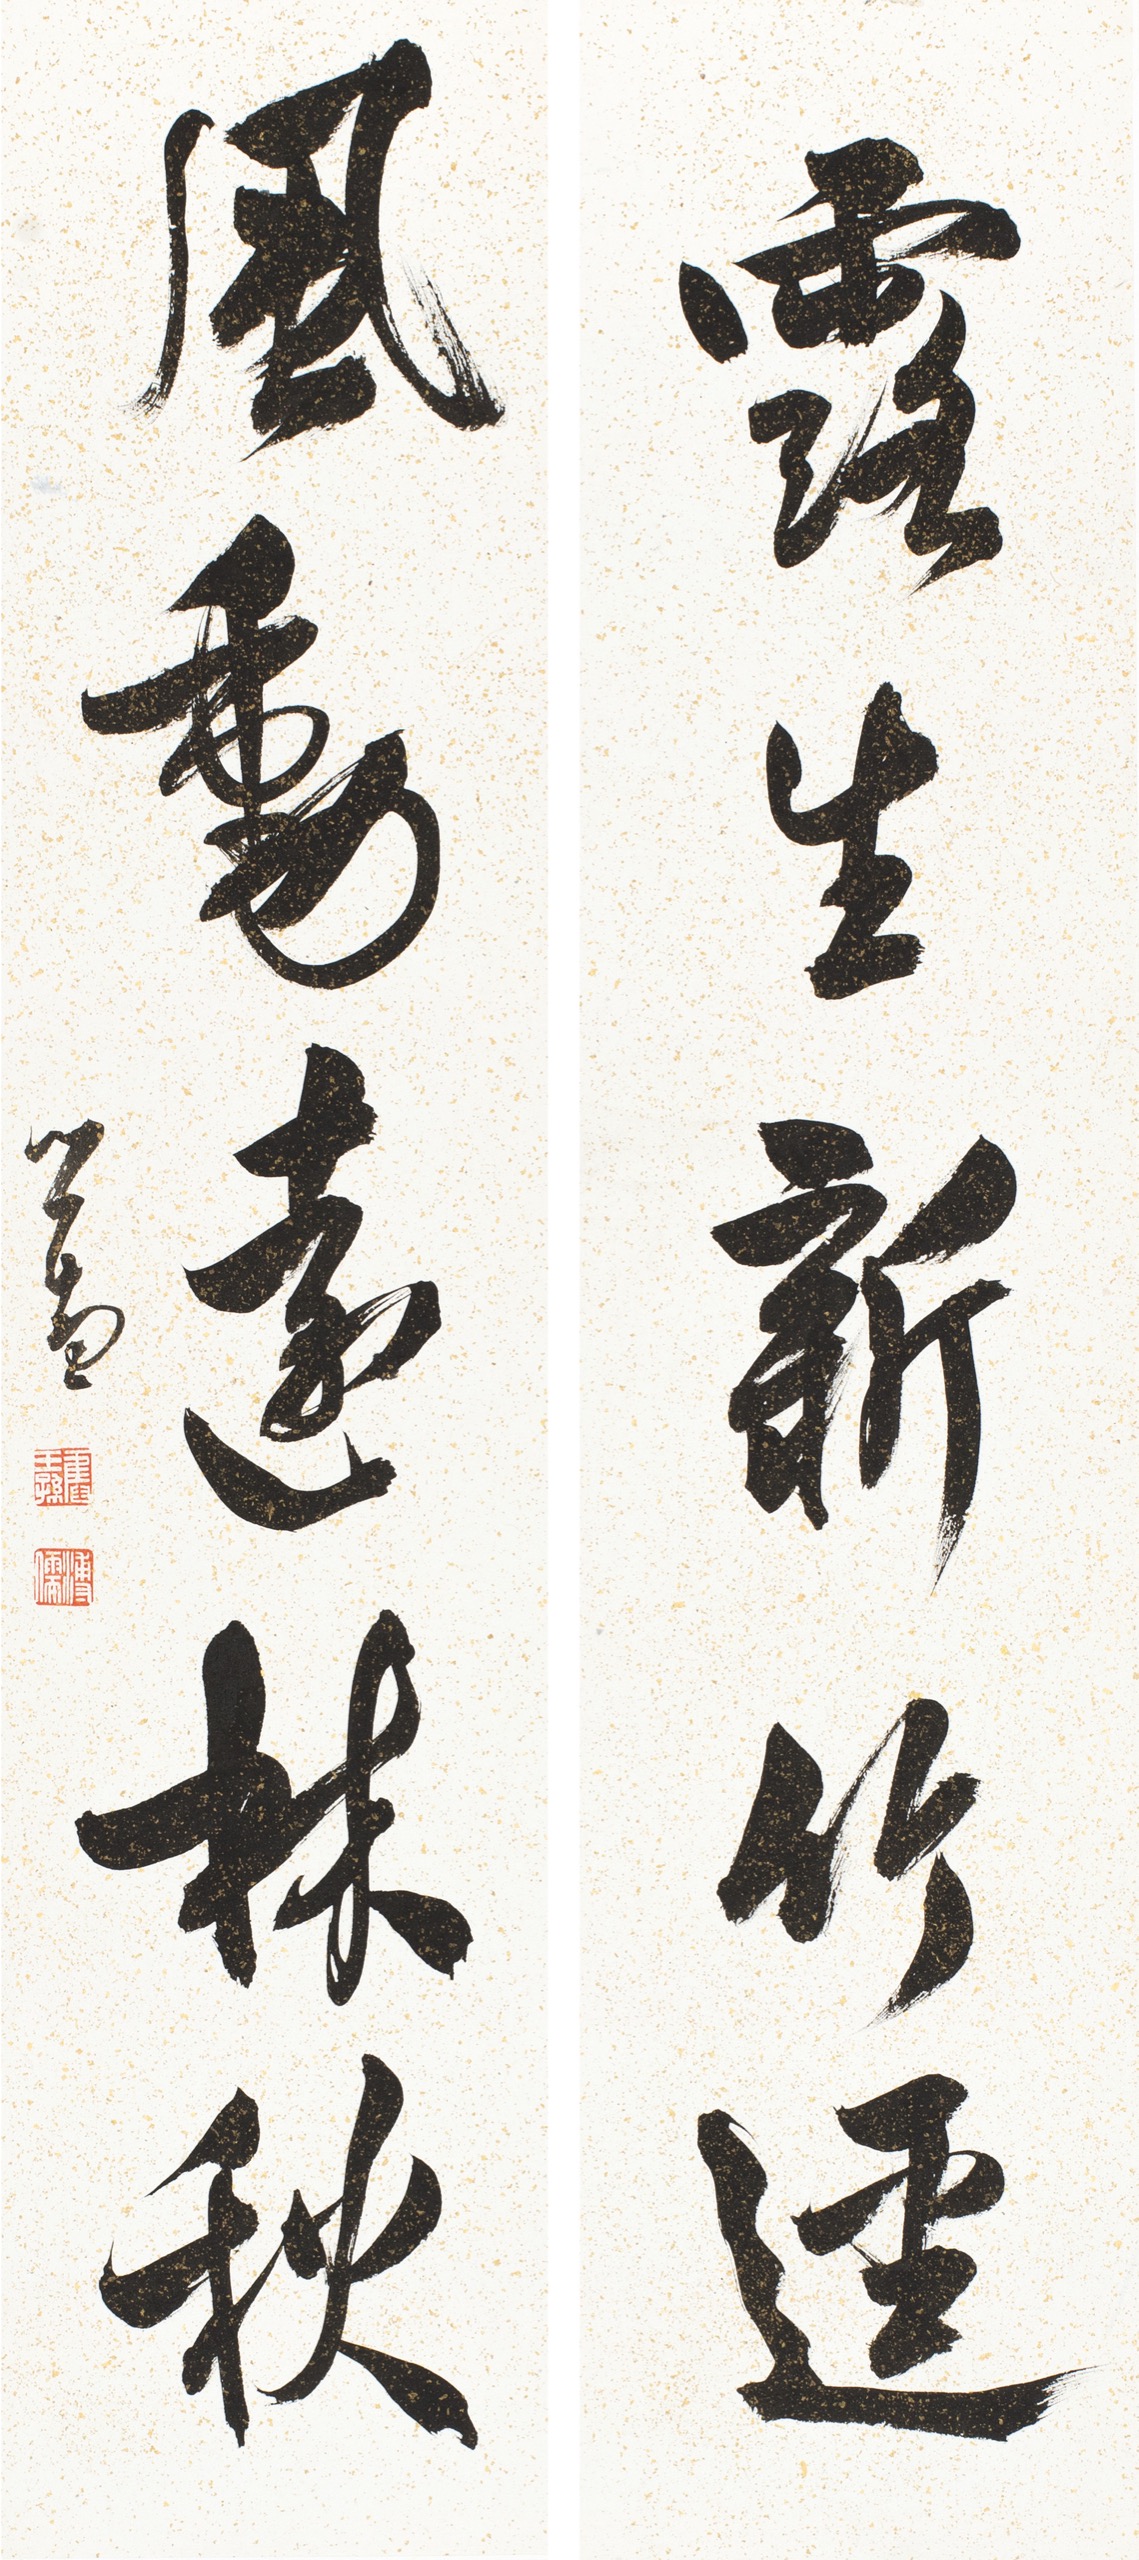 露生新竹逕
風動遠林秋
心畬
舊王孫
溥儒